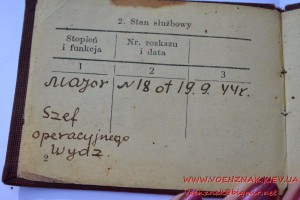 2. Stan służbowy
Stopień i funkcja
Nr. rozkazu i data
1 2 3
Major N18 ot 19.9.44r.
Szef
operacyjnego
Wydz.
2
WWW.VOENZNAK.KIEV.UA